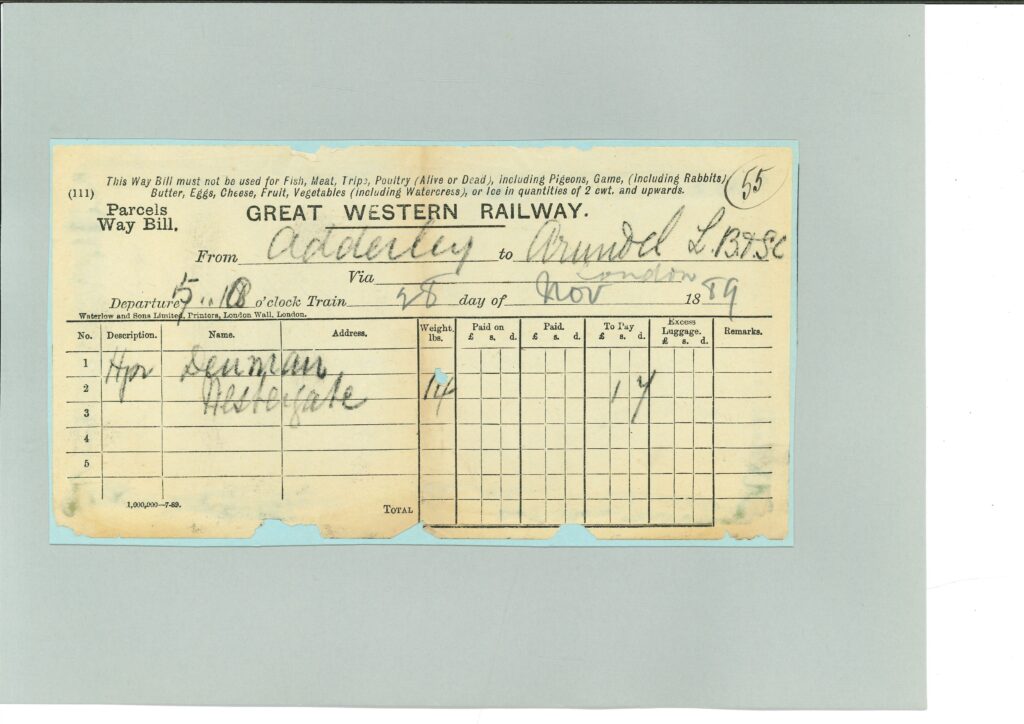 This Way Bill must not be used for Fish, Meat, Tripe, Poultry (Alive or Dead), including Pigeons, Game, (Including Rabbits),
(111) Butter, Eggs, Cheese, Fruit, Vegetables (including Watercress), or Ice in quantities of 2 cwt. and upwards. 55
Parcels Way Bill. GREAT WESTERN RAILWAY.
From Adderley to Arundel L.B.&S.C
Via London
Departure 5 .. 18 o'clock Train 28 day of Nov 1889
Waterlow and Sons Limited, Printers, London Wall, London.
No. Description. Name. Address. Weight lbs. Paid on £ s. d. Paid. £ s. d. To Pay £ s. d. Excess Luggage. £ s. d. Remarks.
1 Hpr Denman
2 Westergate 14 1 7
3
4
5
1,000,000—7-89. TOTAL